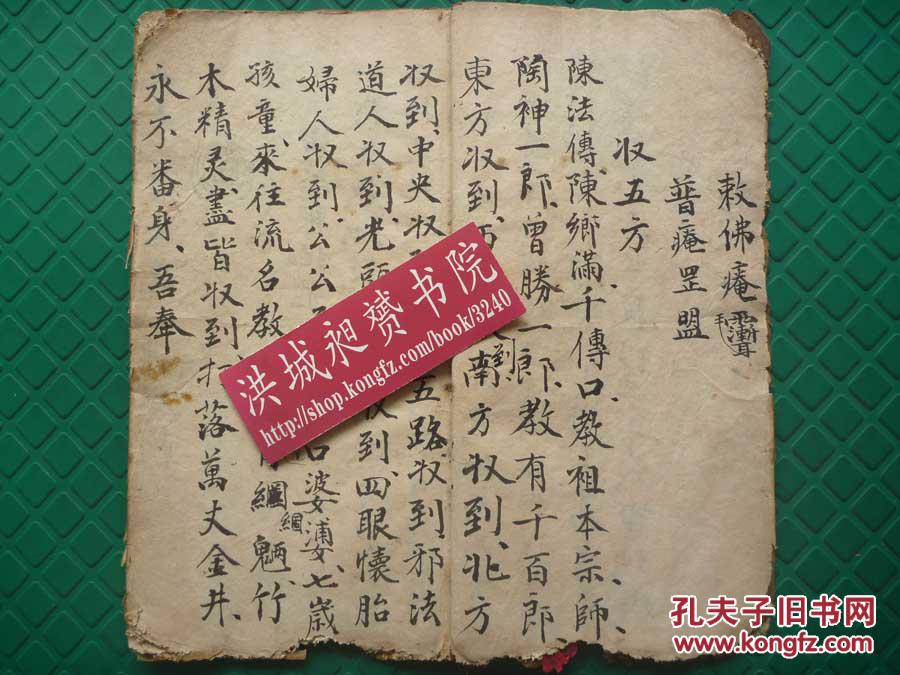 敕佛庵
普庵罡盟
收五方
陳法傳陳鄉滿千傳口教祖本宗、師、
陶神一郎、曾勝一郎、教有千百郎、
東方收到、南方收到、北方
收到、中央收五路、收到、邪法
道人收到、光收到、四眼懷胎
婦人收到、公公婆、七歲
孩童、來往流名教魍魎、竹
木精灵盡皆收到打落萬丈金井、
永不番身、吾奉
洪城昶赟书院
http://shop.kongfz.com/book/3240
孔夫子旧书网
www.kongfz.com